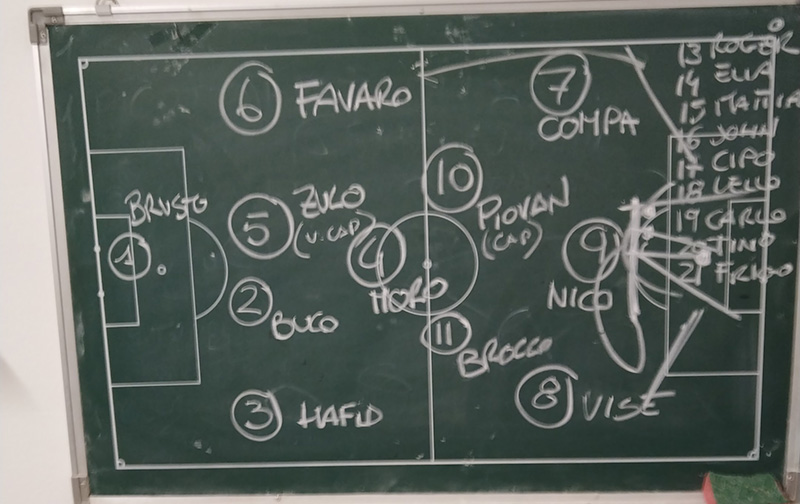 6 FAVARO
7
COMPA
10
PIOVAN
(CAP)
BRUSTO
1
5 ZULO
(V. CAP)
4
MORO
9
NICO
2 BUCO
11
BROCCO
3 HAFID
8 VISE
13 ROGER
14 ELIA
15 MATTIA
16 JOHN
17 CIPO
18 LELLO
19 CARLO
TINO
21 FRIGO